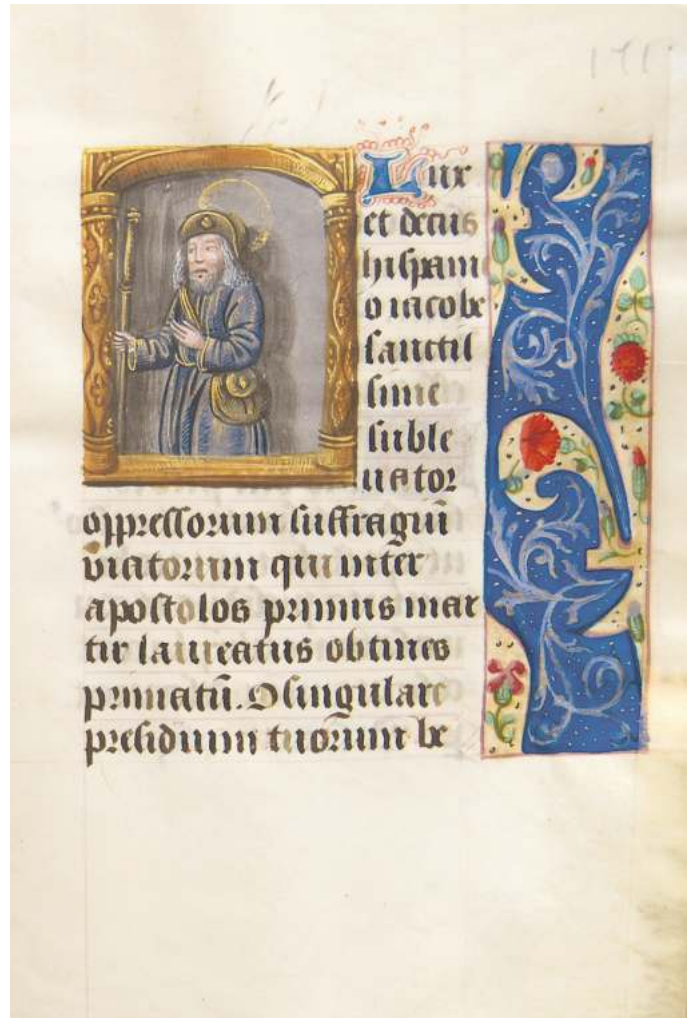 Lux
et decus
hispani
o iacobe
sanctis
sime
suble
uator
oppressorum suffragiū
viatorum qui inter
apostolos primus mar
tir laureatus obtines
primatū. O singulare
presidium tuorum be